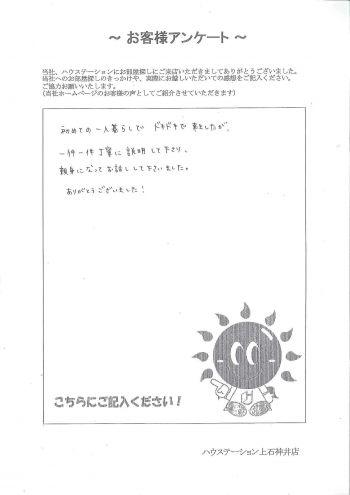 ～ お客様アンケート ～
当社、ハウステーションにお部屋探しにご来店いただきましてありがとうございました。
当社へのお部屋探しのきっかけや、実際にお越しいただいての感想をご記入ください。
ご協力お願いいたします。
(当社ホームページのお客様の声としてご紹介させていただきます)
初めての一人暮らしで ドキドキで 来ましたが、
一件一件丁寧に説明して下さり、
親身になってお話しして下さいました。
ありがとうございました！
こちらにご記入ください！
ハウステーション上石神井店